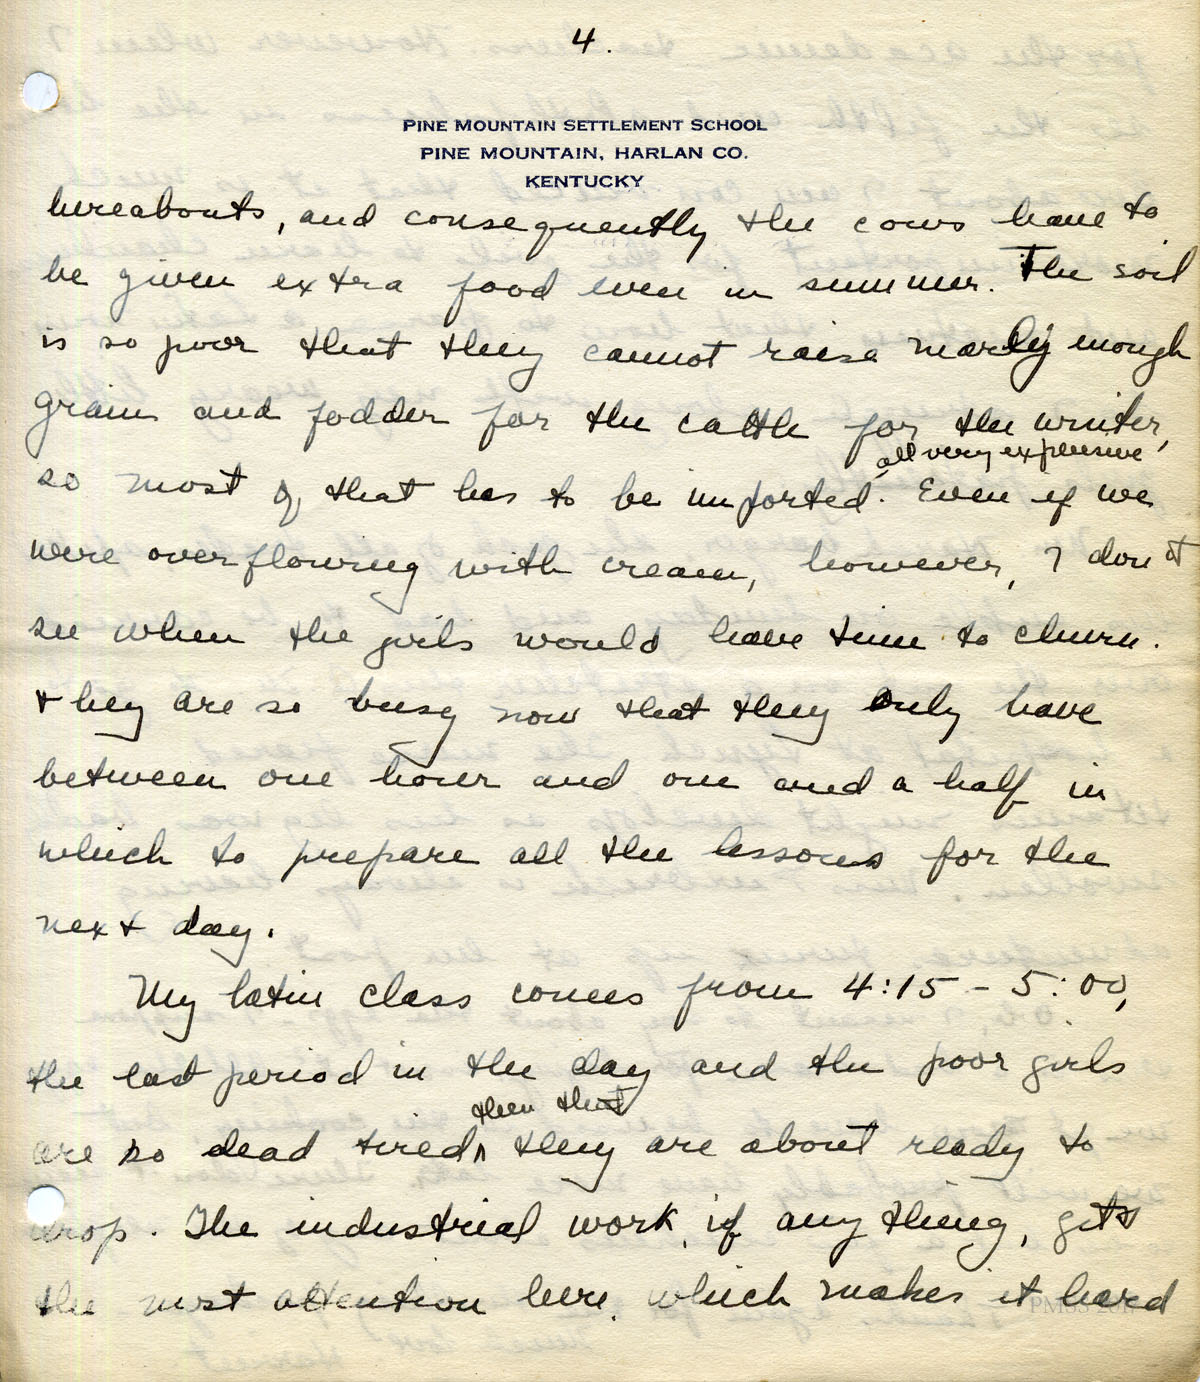 4.
PINE MOUNTAIN SETTLEMENT SCHOOL
PINE MOUNTAIN, HARLAN CO.
KENTUCKY
hereabouts, and consequently the cows have to
be given extra food even in summer. The soil
is so poor that they cannot raise nearly enough
grain and fodder for the cattle for the winter,
all very expensive
so most of that has to be imported. Even if we
were overflowing with cream, however, I don't
see when the girls would have time to churn.
they are so busy now that they only have
between one hour and one and a half in
which to prepare all the lessons for the
next day.
My latin class comes from 4:15 - 5:00,
the last period in the day and the poor girls
then that
are so dead tired they are about ready to
drop. The industrial work, if any thing, gets
the most attention here, which makes it hard
PMSS 2017